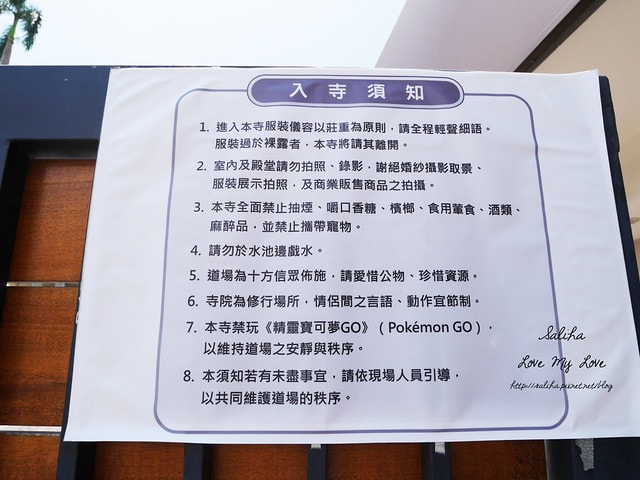 入寺須知
1. 進入本寺服裝儀容以莊重為原則，請全程輕聲細語。
服裝過於裸露者，本寺將請其離開。
2. 室內及殿堂請勿拍照、錄影，謝絕婚紗攝影取景、
服裝展示拍照，及商業販售商品之拍攝。
3. 本寺全面禁止抽煙、嚼口香糖、檳榔、食用葷食、酒類、
麻醉品，並禁止攜帶寵物。
4. 請勿於水池邊戲水。
5. 道場為十方信眾佈施，請愛惜公物、珍惜資源。
6. 寺院為修行場所，情侶間之言語、動作宜節制。
7. 本寺禁玩《精靈寶可夢GO》（Pokémon GO），
以維持道場之安靜與秩序。
8. 本須知若有未盡事宜，請依現場人員引導，
以共同維護道場的秩序。
Saliha
Love My Love
http://saliha.pixnet.net/blog